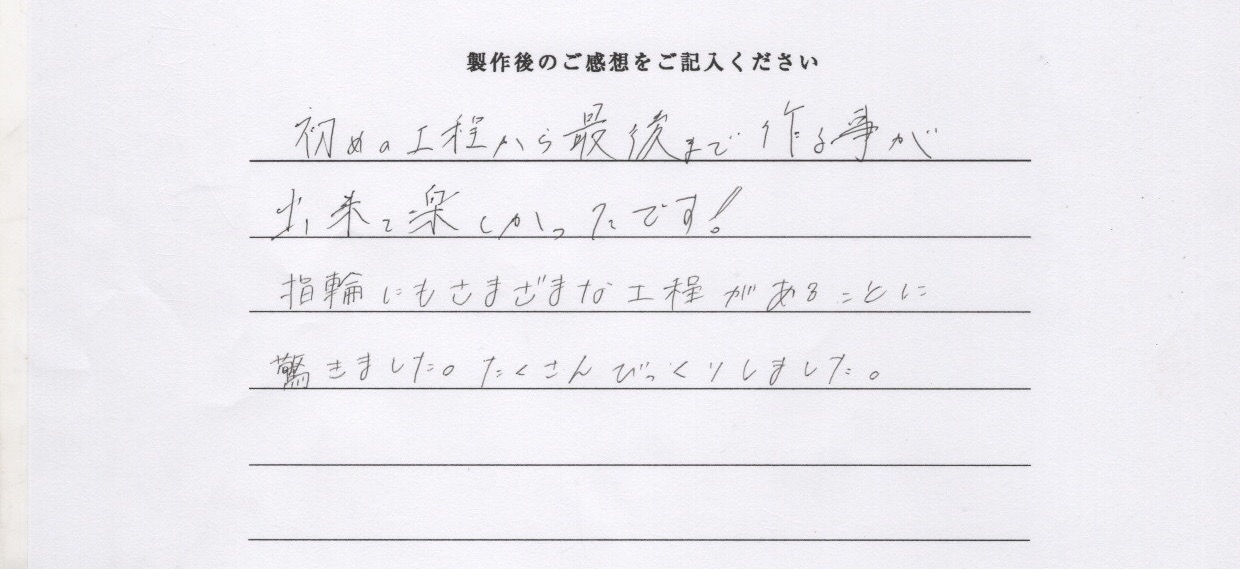 製作後のご感想をご記入ください
初めの工程から最後まで作る事が
出来て楽しかったです!
指輪にもさまざまな工程があることに
驚きました。たくさんびっくりしました。